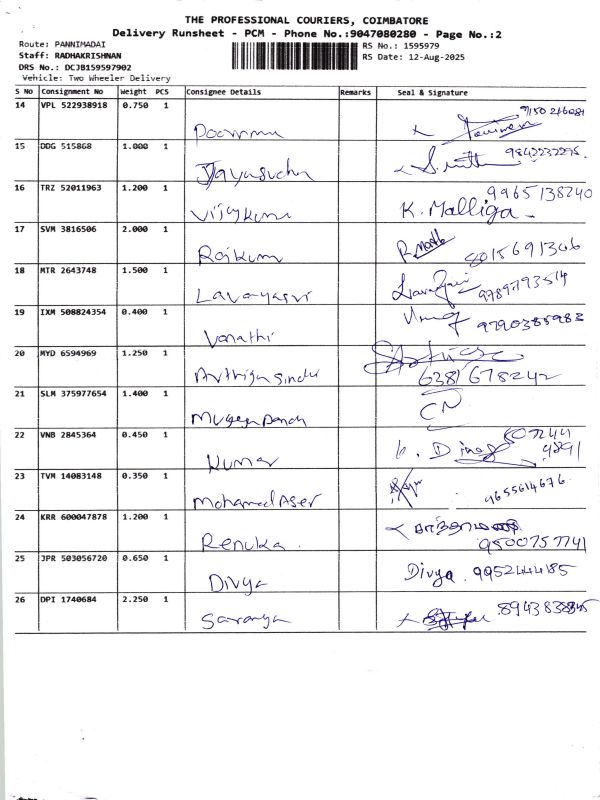 THE PROFESSIONAL COURIERS, COIMBATORE
Delivery Runsheet - PCM - Phone No.:9047080280 - Page No.:2
Route: PANNIMADAI RS No.: 1595979
Staff: RADHAKRISHNAN RS Date: 12-Aug-2025
DRS No.: DCJB159597902
Vehicle: Two Wheeler Delivery
S No Consignment No Weight PCS Consignee Details Remarks Seal & Signature
14 VPL 522938918 0.750 1
15 DDG 515868 1.000 1 Jayasudha
16 TRZ 52011963 1.200 1 Vijaykumar K. Malliga 9965138240
17 SVM 3816506 2.000 1 Rajkumar 8015691306
18 MTR 2643748 1.500 1 9789793514
19 IXM 508824354 0.400 1 Vanathi 9790385983
20 MYD 6594969 1.250 1 6381678242
21 SLM 375977654 1.400 1
22 VNB 2845364 0.450 1 Kumar
23 TVM 14083148 0.350 1 Mohamed 9655614676
24 KRR 600047878 1.200 1 Renuka. 9500757741
25 JPR 503056720 0.650 1 Divya Divya. 9952444185
26 DPI 1740684 2.250 1 Saranya